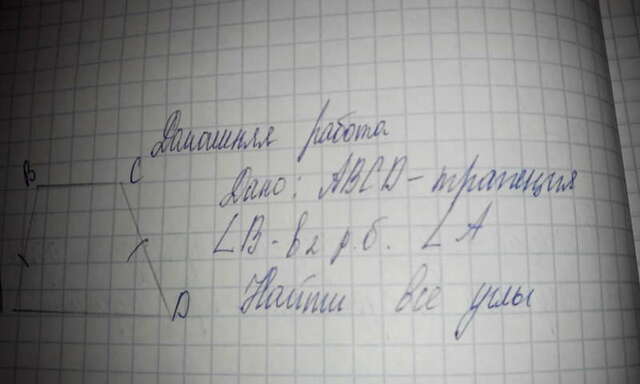 Домашняя работа
B
C
Дано: ABCD - трапеция
∠B - в 2 р. б. ∠A
D
Найти все углы